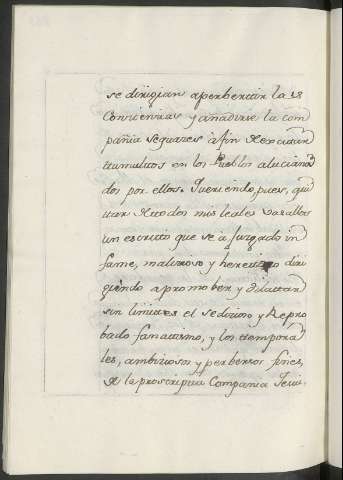 se dirigian aperbertir las
Conciencias y añadirse la com
pañia sequazes afin de excitar
tumultos en los Pueblos alucina
dos por ellos. Queriendo, pues, qui
tar de todos mis leales vasallos
un escrito que se á Juzgado in
fame, malicioso y heretico diri
giendo a promober y dilatar
sin limites el sedicioso y Repro
bado fanatismo, y los tempora
les, ambiciosos y perbersos fines,
de la proscripta Compania Jesui.